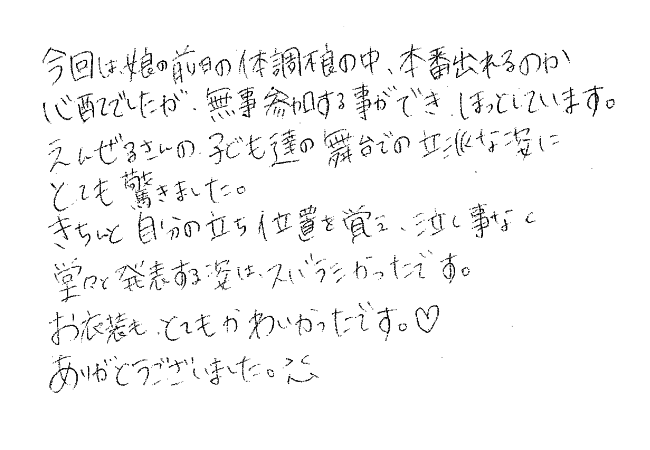 今回は娘の前日の体調不良の中、本番出れるのか
心配でしたが、無事参加する事ができ、ほっとしています。
えんぜるさんの子ども達の舞台での立派な姿に
とても驚きました。
きちんと自分の立ち位置を覚え、泣く事なく
堂々と発表する姿は、スバラシかったです。
お衣装も、とてもかわいかったです。♡
ありがとうございました。